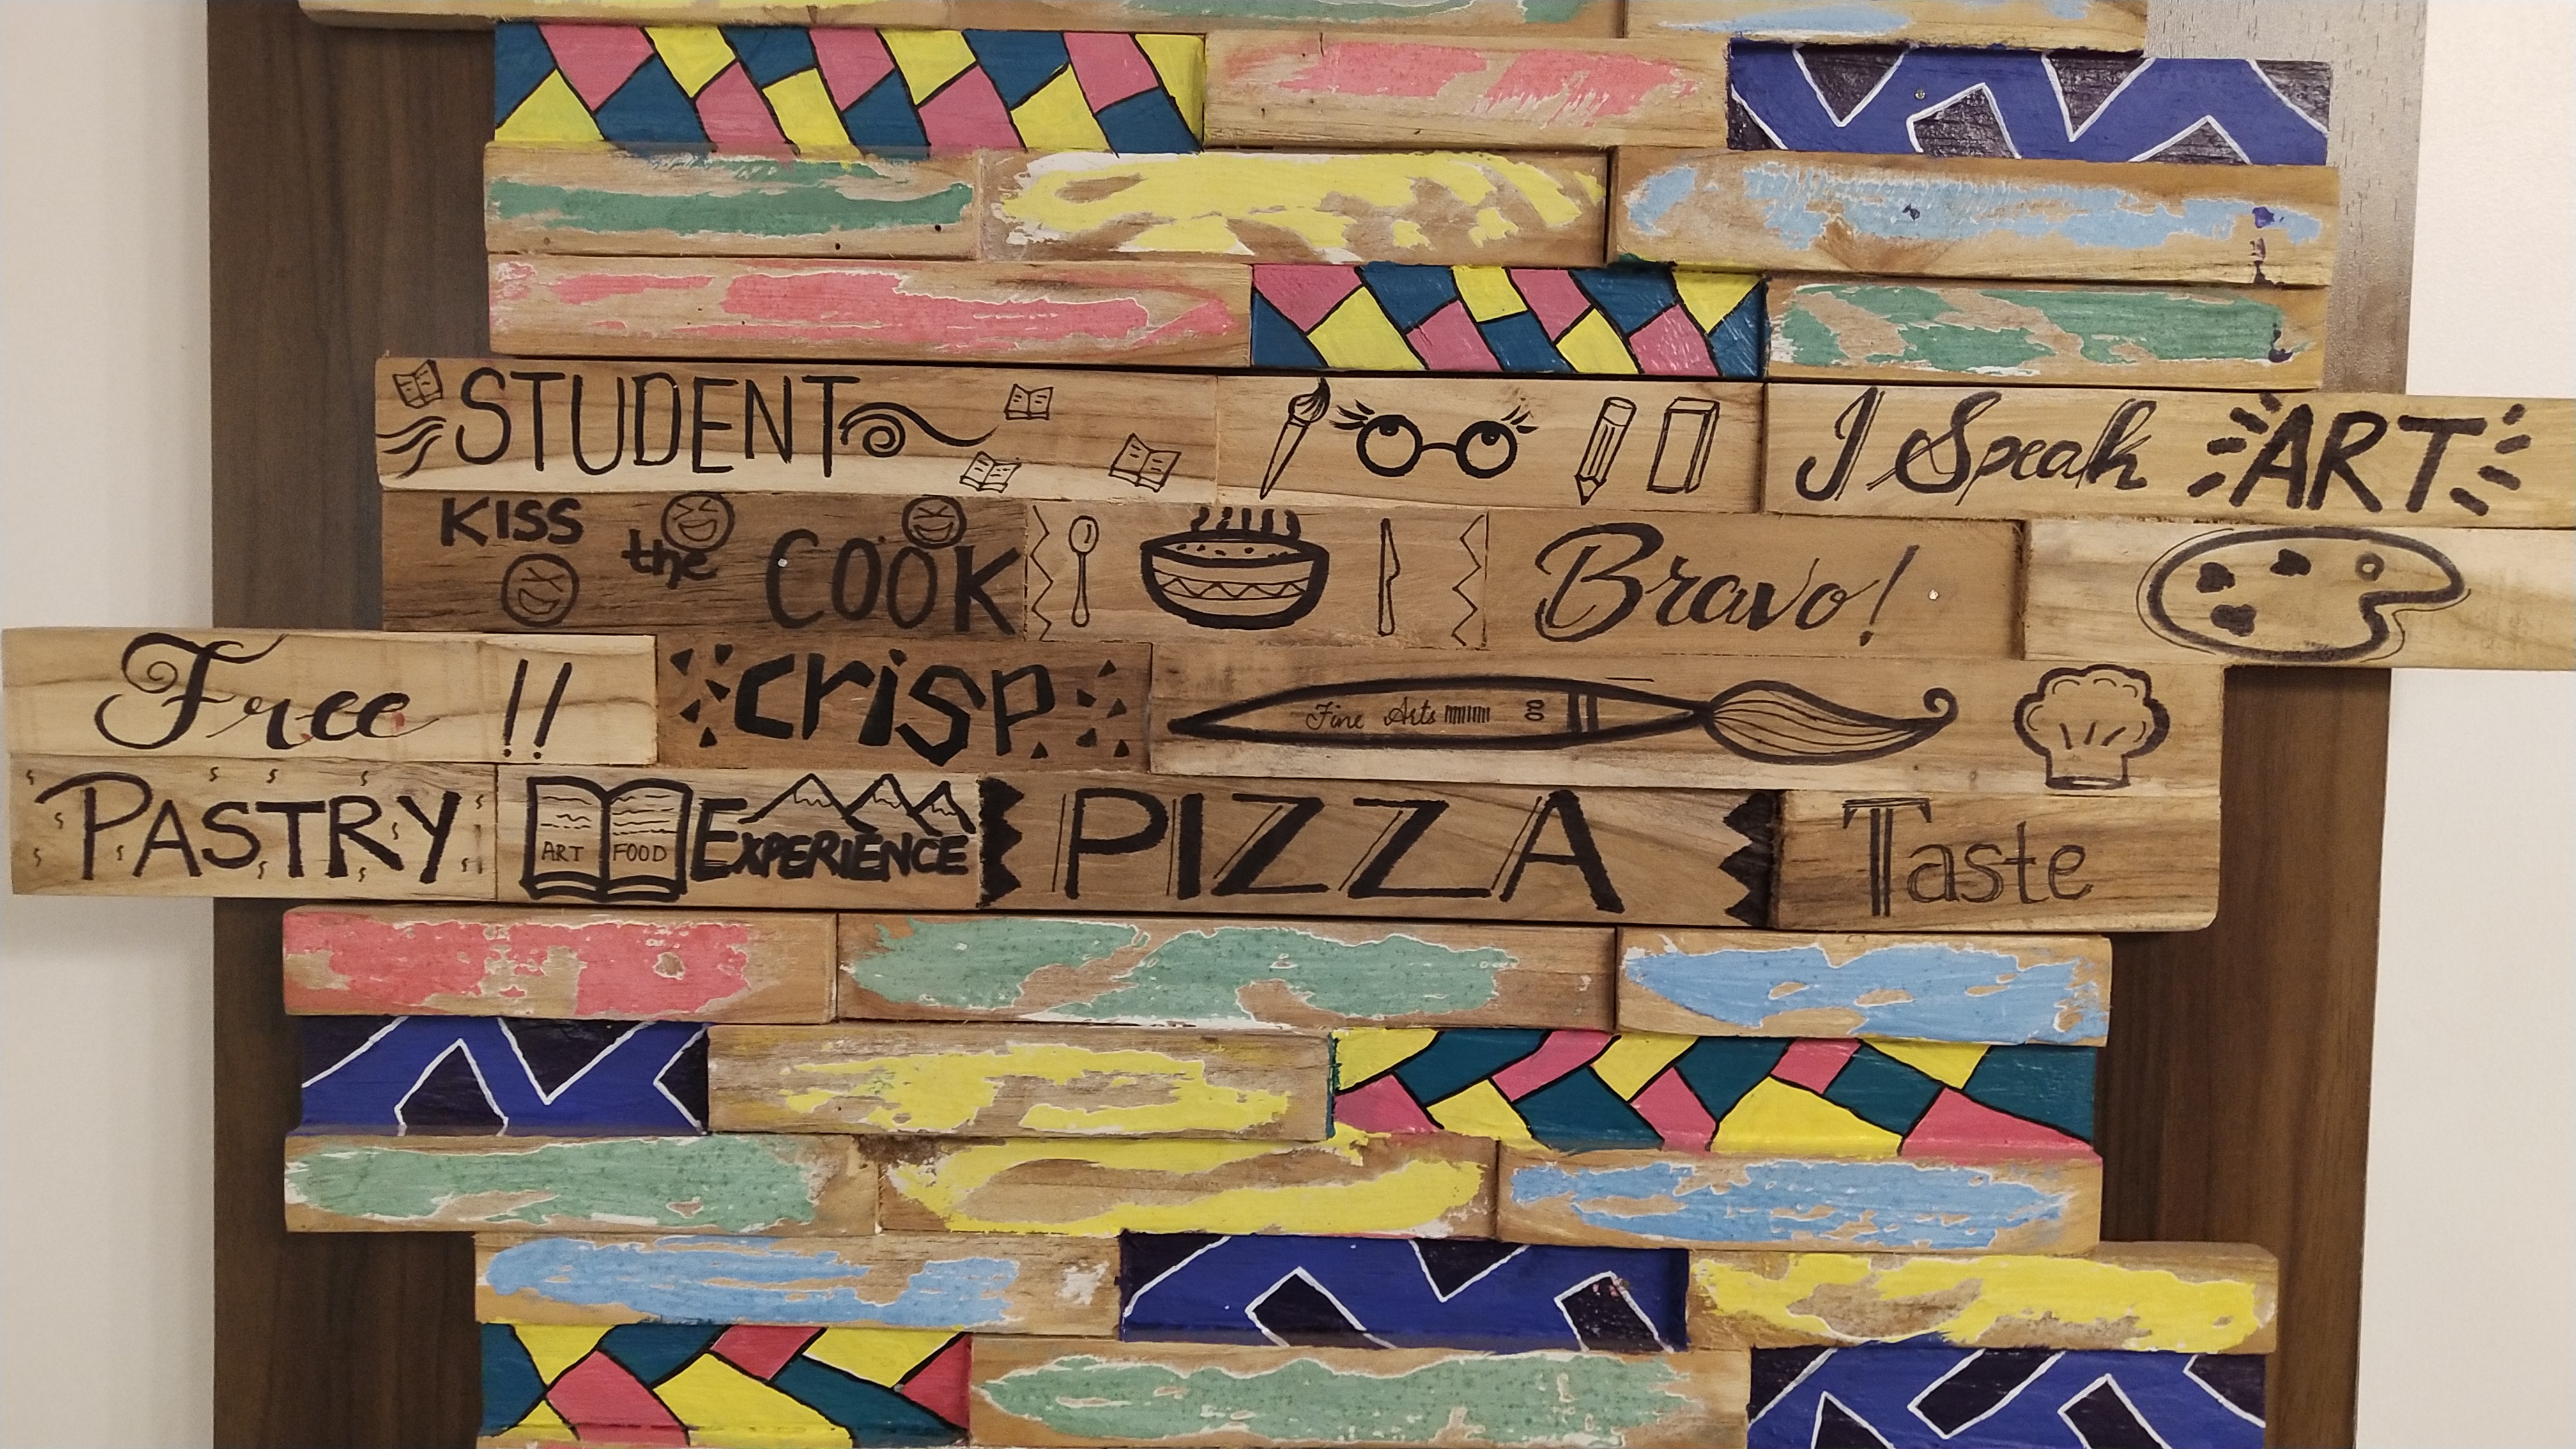 STUDENT I Speak ART
KISS the COOK Bravo!
Free !! crisp Fine Arts
PASTRY ART FOOD EXPERIENCE PIZZA Taste